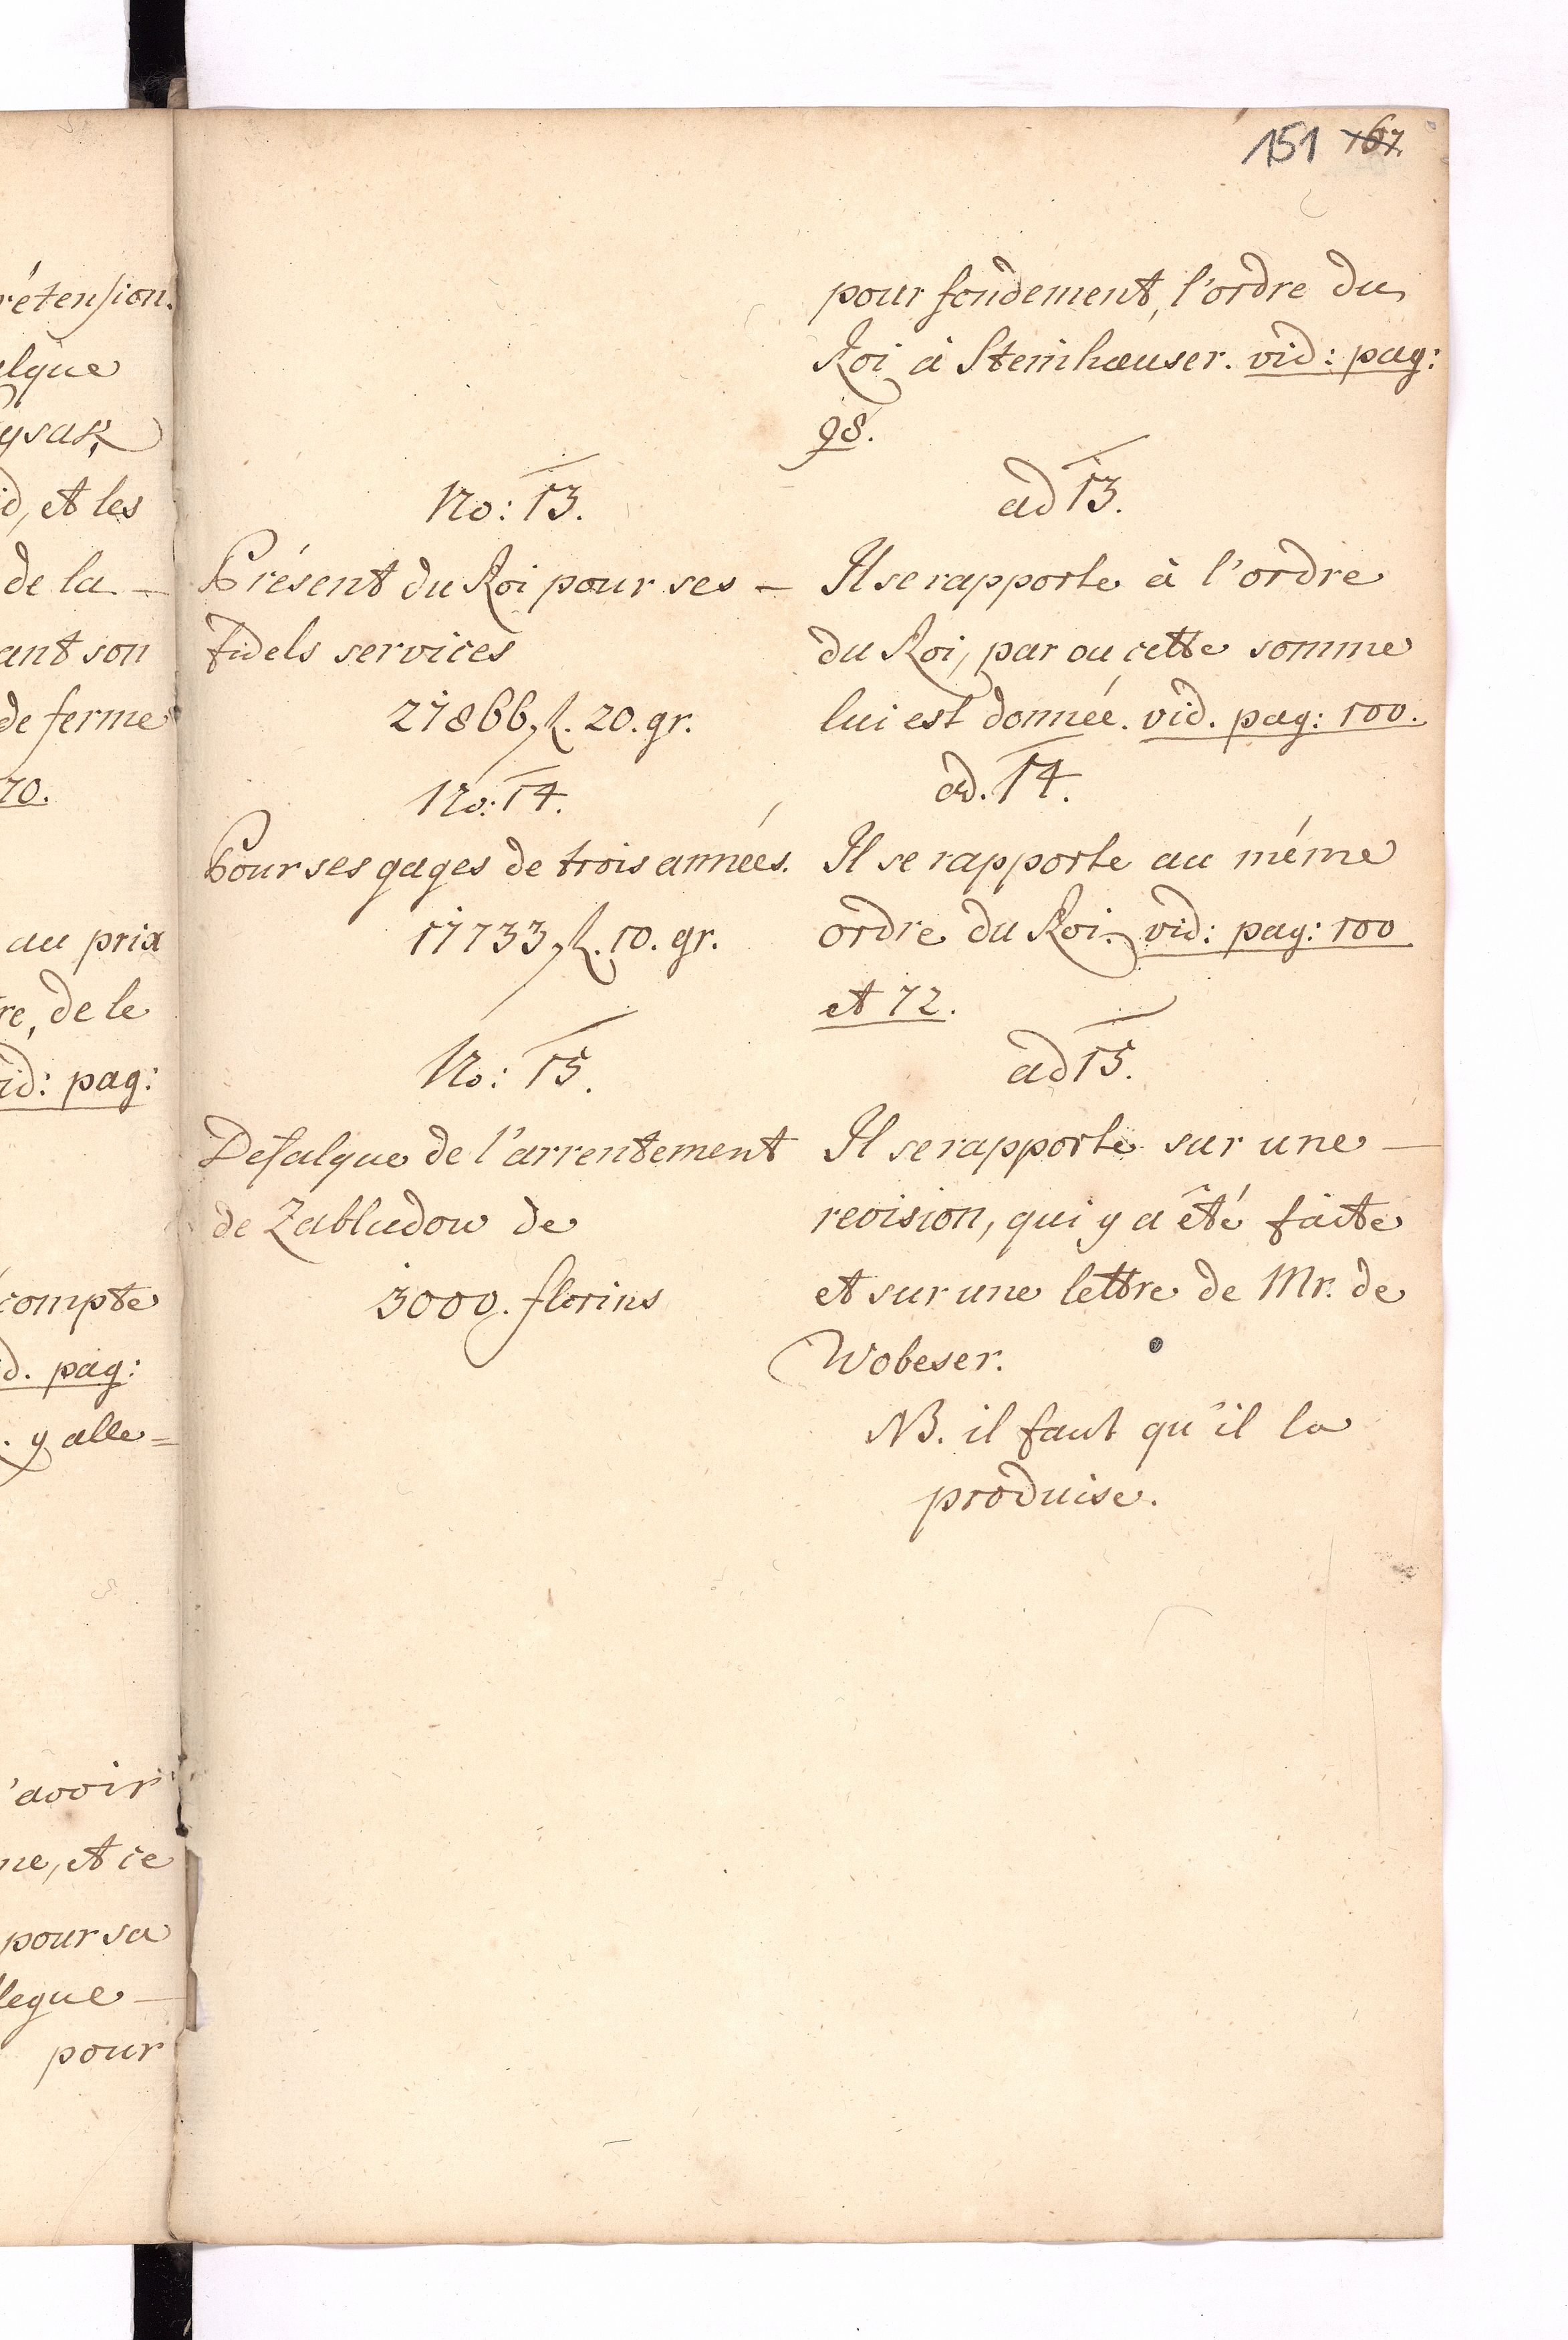 151 167.
rétension.
alque
ysak,
id, et les
de la —
ant son
de ferme
70.
au prix
re, de le
id: pag:
compte
d. pag:
. y alle=
'avoir
ne, et ce
pour sa
legue —
pour
pour fondement, l'ordre du
Roi à Steinhæuser. vid: pag:
98.
No: 13.
Présent du Roi pour ses —
fidels services
21866, fl. 20. gr.
ad 13.
Il se rapporte à l'ordre
du Roi, par ou cette somme
lui est donnée. vid. pag: 100.
No: 14.
Pour ses gages de trois années.
17733, fl. 10. gr.
ad. 14.
Il se rapporte au méme
ordre du Roi. vid: pag: 100
et 72.
No: 15.
Defalque de l'arrentement
de Zabludow de
3000. florins
ad 15.
Il se rapporte sur une —
revision, qui y a êté faite
et sur une lettre de Mr. de
Wobeser.
NB. il faut qu'il la
produise.